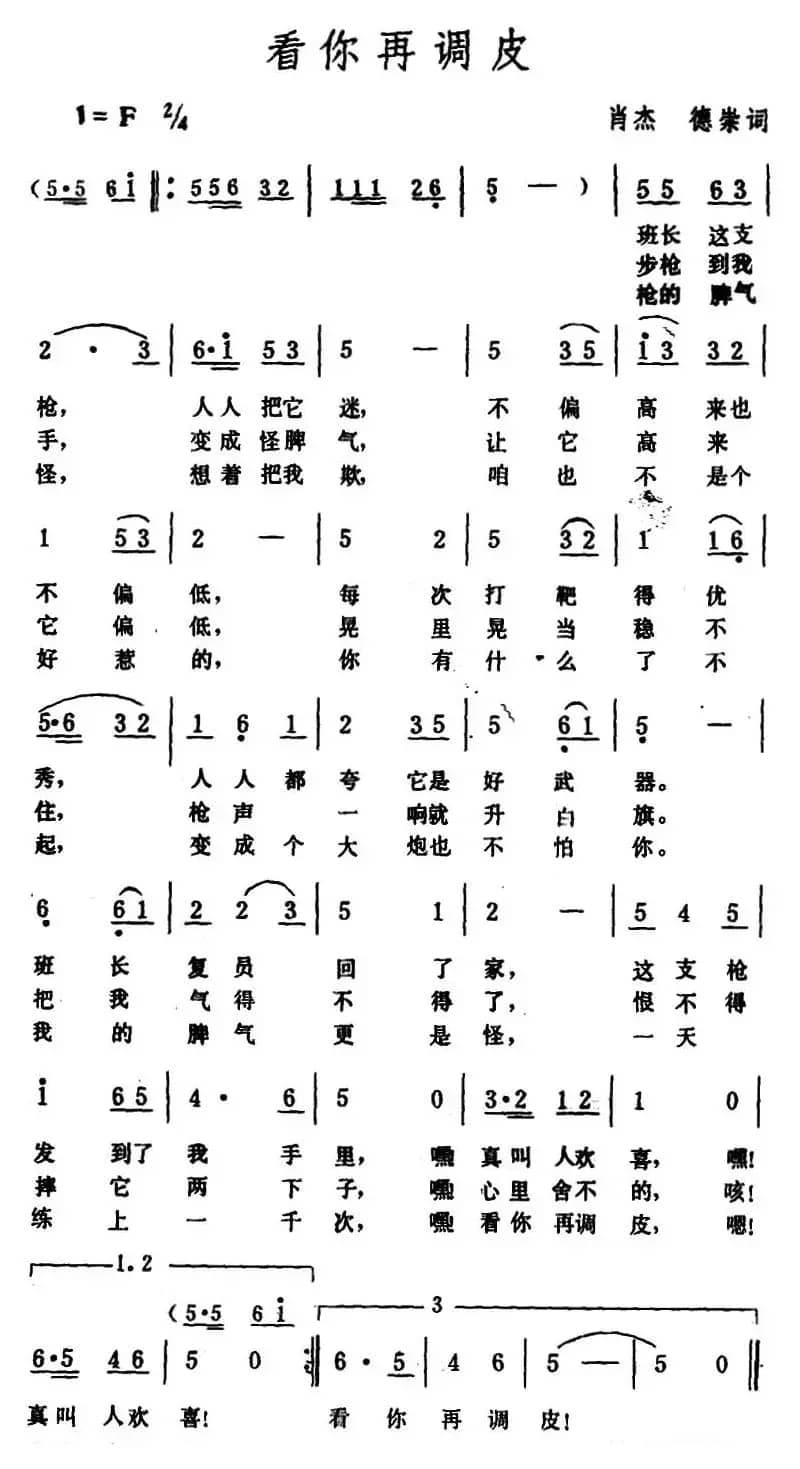 看你再调皮
1=F 2/4 肖杰 德崇词
(5·5 6i ‖: 556 32 | 111 26 | 5 — ) | 55 63 |
班长 这支
步枪 到我
枪的 脾气
2 · 3 | 6·i 53 | 5 — | 5 35 | i3 32 |
枪, 人人 把它 迷, 不 偏 高 来也
手, 变成 怪脾 气, 让 它 高 来
怪, 想着 把我 欺, 咱 也 不 是个
1 53 | 2 — | 5 2 | 5 32 | 1 16 |
不 偏 低, 每 次 打 靶 得 优
它 偏 低, 晃 里 晃 当 稳 不
好 惹 的, 你 有 什 么 了 不
5·6 32 | 1 6 1 | 2 35 | 5 61 | 5 — |
秀, 人 人 都 夸 它是 好 武 器。
住, 枪 声 一 响就 升 白 旗。
起, 变 成 个 大 炮也 不 怕 你。
6 61 | 2 2 3 | 5 1 | 2 — | 5 4 5 |
班 长 复 员 回 了 家, 这 支 枪
把 我 气 得 不 得 了, 恨 不 得
我 的 脾 气 更 是 怪, 一 天
i 65 | 4 · 6 | 5 0 | 3·2 12 | 1 0 |
发 到了 我 手 里, 嘿 真叫 人欢 喜, 嘿!
摔 它 两 下 子, 嘿 心里 舍不 的, 咳!
练 上 一 千 次, 嘿 看你 再调 皮, 嗯!
1.2
(5·5 6i 3
6·5 46 | 5 0 :‖ 6 · 5 | 4 6 | 5 — | 5 0 ‖
真叫 人欢 喜! 看 你 再 调 皮!